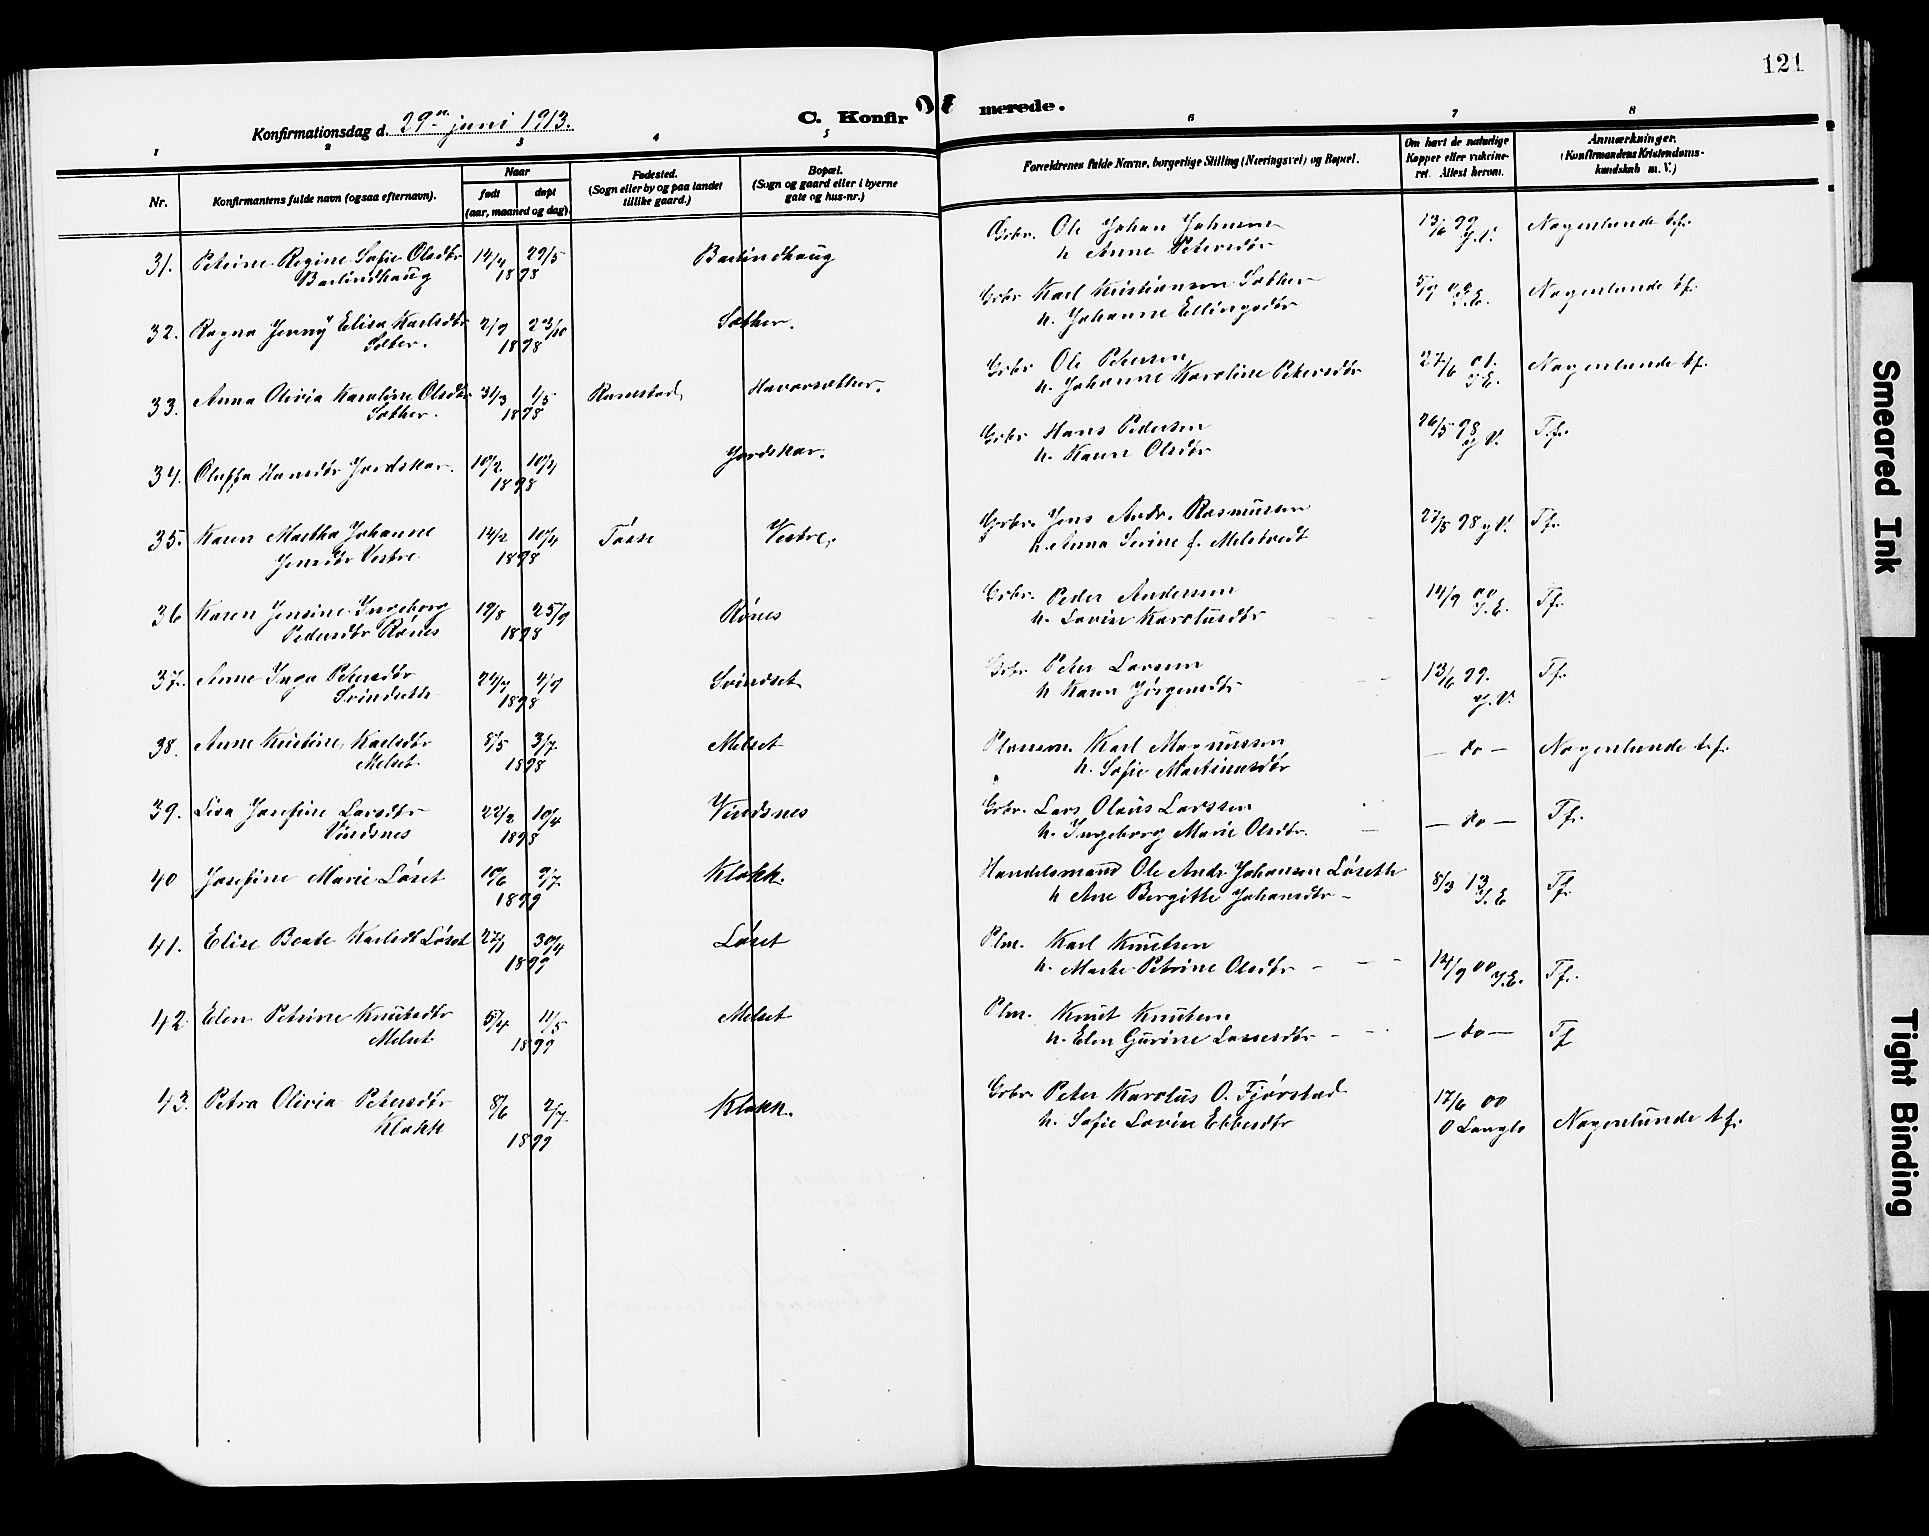 121
Konfirmationsdag d. 29de juni 1913.
C. Konfirmerede.
1 2 3 4 5 6 7 8
Nr.
Konfirmantens fulde navn (ogsaa efternavn).
Naar
født
døpt
(aar, maaned og dag).
Fødested.
(Sogn eller by og paa landet
tillike gaard.)
Bopæl.
(Sogn og gaard eller i byerne
gate og hus-nr.)
Forældrenes fulde Navne, borgerlige Stilling (Næringsvei) og Bopæl.
Om havt de naturlige
Kopper eller vakcine-
ret. Attest herom.
Anmærkninger.
(Konfirmandens Kristendoms-
kundskab m. V.)
31. Petrine Regine Sofie Olsdtr 14/4 29/5 Barlindhaug Grbr. Ole Johan Johnsen 13/6 99 Nogenlunde t.f.
Barlindhaug 1898 h. Anne Petersdtr
32. Ragna Jenny Elisa Karlsdtr 2/9 23/10 Sæther. Grbr Karl Kristiansen Sæther 5/9 00 Nogenlunde t.f.
Sæter. 1898 h. Johanne Ellingsdtr J.E.
33. Anna Olivia Karoline Olsdtr 31/3 1/5 Ramstad, Havarsæther. Grbr Ole Petersen 27/6 01. Nogenlunde t.f.
Sæther. 1898 h. Johanne Karoline Petersdtr J.E.
34. Oluffa Hansdtr Jordskar. 10/2 10/4 Jordskar. Grbr Hans Pedersen 26/5 98 T.f.
1898 h. Karen Olsdtr
35. Karen Martha Johanne 14/2 10/4 Tøsse Vestre. Grbr. Jens Andr. Rasmussen 27/5 98 T.f.
Jensdtr Vestre 1898 h. Anna Sevine f. Melstvedt
36 Karen Jensine Ingeborg 19/8 25/9 Rønes Grbr. Peder Andersen 14/9 00 T.f.
Pedersdtr Rønes 1898 h. Lovise Karolusdtr J.E.
37. Anne Inga Petersdtr 24/7 4/9 Svindset Grbr Peter Larsen 13/6 99. T.f.
Svindseth 1898 h Karen Jørgensdtr
38. Anne Kristine Karlsdtr 8/5 3/7. Melset Plassm. Karl Magnussen — do — Nogenlunde t.f.
Melset. 1898 h. Sofie Martinusdtr
39. Lisa Josefine Larsdtr 22/2 10/4 Vindsnes Grbr. Lars Olaus Larssen — do — T.f.
Vindsnes 1898 h. Ingeborg Marie Olsdtr.
40 Josefine Marie Løset 10/6 9/7 Klokk. Handelsmand Ole Andr. Johansen Løseth 8/3 13 T.f.
1899 h Ane Bergitte Johansdtr – J.E
41. Elise Beate Karlsdt Løset 27/1 30/4 Løset Plm. Karl Knutsen
1899 h. Marte Petrine Olsdtr – 14/9 00 J.E. T.f.
42. Elen Petrine Knutsdtr 5/4 11/5 Melset Plm. Knut Knutsen
Melset 1899 h. Elen Gurine Lassesdtr – — do — T.f
43. Petra Olivia Petersdtr 8/6 2/7. Klokk. Grbr. Peter Karolus O. Fjørstad 17/6 00
Klokk 1899 h. Sofie Lovise Ebbesdtr O Langlo Nogenlunde t.f.
Smeared Ink
Tight Binding